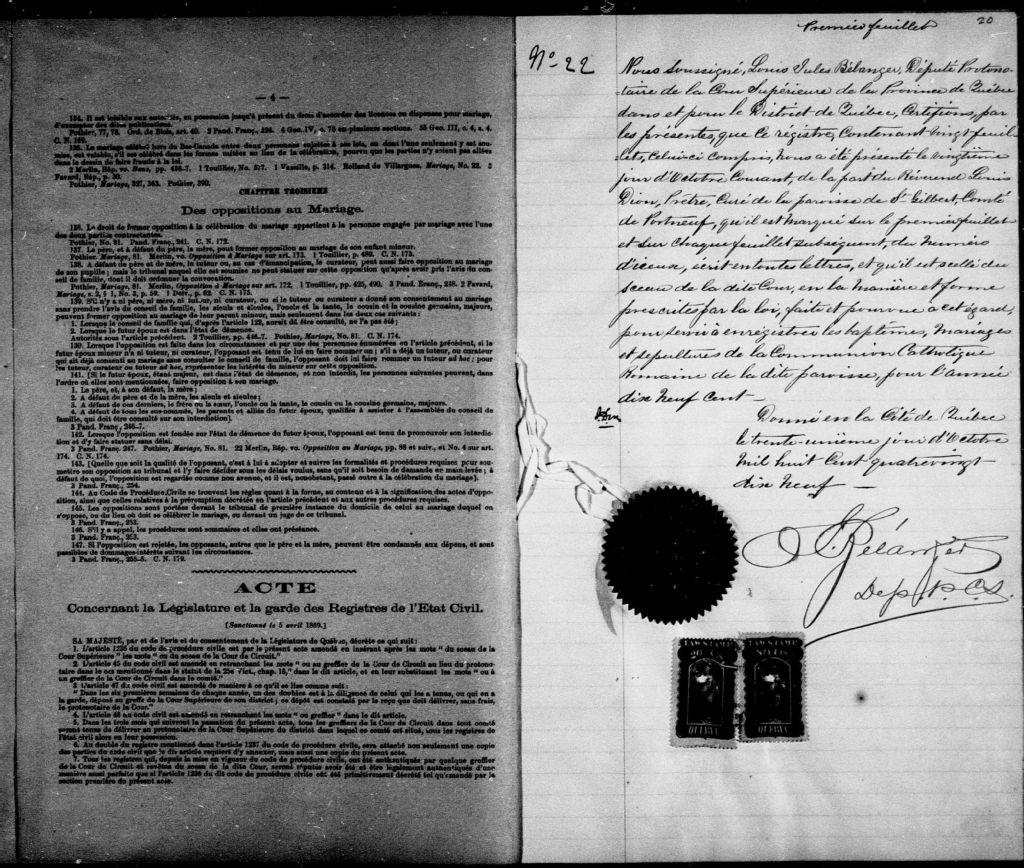 — 4 —
134. Il est loisible aux autorités, en possession jusqu'à présent du droit d'accorder des licences ou dispenses pour mariage,
d'exempter des dites publications.
Pothier, 77, 78. Ord. de Blois, art. 40. 2 Pand. Franç., 224. 4 Geo. IV, c. 78 en plusieurs sections. 35 Geo. III, c. 4, s. 4.
C. N. 169.
135. Le mariage célébré hors du Bas-Canada entre deux personnes sujettes à ses lois, ou dont l'une seulement y est sou-
mise, est valable, s'il est célébré dans les formes usitées au lieu de la célébration, pourvu que les parties n'y soient pas allées
dans le dessin de faire fraude à la loi.
2 Merlin, Rép. vo. Bans, pp. 1 Touillier, No. 577. 1 Vazeille, p. 314. Rolland de Villargues, Mariage, No. 22. 3
Favard, Rép., p.
Pothier, Mariage, 327, 363. Pothier, 390.
CHAPITRE TROISIEME
Des oppositions au Mariage.
136. Le droit de former opposition à la célébration du mariage appartient à la personne engagée par mariage avec l'une
des deux parties contractantes.
Pothier, No. 81. Pand. Franç., 241. C. N. 172.
137. Le père, et à défaut du père, la mère, peut former opposition au mariage de son enfant mineur.
Pothier, Mariage, 81. Merlin, vo. Opposition à Mariage sur art. 173. 1 Touillier, p. 489. C. N. 173.
138. A défaut de père et de mère, le tuteur ou, au cas d'émancipation, le curateur, peut aussi faire opposition au mariage
de son pupille; mais le tribunal auquel elle est soumise ne peut statuer sur cette opposition qu'après avoir pris l'avis du con-
seil de famille, dont il doit ordonner la convocation.
Pothier, Mariage, 81. Merlin, Opposition à Mariage sur art. 172. 1 Touillier, pp. 425, 490. 3 Pand. Franç., 238. 2 Favard,
Mariage, s. 2, § 1, No. 3, p. 59. 1 Delv., p. 62. C. N. 175.
139. S'il n'y a ni père, ni mère, ni tuteur, ni curateur, ou si le tuteur ou curateur a donné son consentement au mariage
sans prendre l'avis du conseil de famille, les aïeuls et aïeules, l'oncle et la tante, le cousin et la cousine germains, majeurs,
peuvent former opposition au mariage de leur parent mineur, mais seulement dans les deux cas suivants:
1. Lorsque le conseil de famille qui, d'après l'article 122, aurait dû être consulté, ne l'a pas été;
2. Lorsque le futur époux est dans l'état de démence.
Autorités sous l'article précédent. 2 Touillier, pp. 446-7. Pothier, Mariage, No. 81. C. N. 174.
130. Lorsque opposition est faite dans les circonstances et par une des personnes énumérées en l'article précédent, si le
futur époux mineur n'a ni tuteur, ni curateur, l'opposant est tenu de lui en faire nommer un; s'il a déjà un tuteur, ou curateur
ait déjà consenti au mariage sans consulter le conseil de famille, l'opposant doit lui faire nommer un tuteur ad hoc; pour
les tuteur, curateur ou tuteur ad hoc, représenter les intérêts du mineur sur cette opposition.
141. [Si le futur époux, étant majeur, est dans l'état de démence, et non interdit, les personnes suivantes peuvent, dans
l'ordre où elles sont mentionnées, faire opposition à son mariage.
1. Le père, et, à son défaut, la mère;
2. A défaut du père et de la mère, les aïeuls et aïeules;
3. A défaut de ces derniers, le frère ou la sœur, l'oncle ou la tante, le cousin ou la cousine germains, majeurs.
4. A défaut de tous les sus-nommés, les parents et alliés du futur époux, qualifiés à assister à l'assemblée du conseil de
famille, qui doit être consulté sur son interdiction].
3 Pand. Franç., 246-7.
142. Lorsque l'opposition est fondée sur l'état de démence du futur époux, l'opposant est tenu de promouvoir son interdic-
tion et d'y faire statuer sans délai.
3 Pand. Franç., 247. Pothier, Mariage, No. 81. 22 Merlin, Rép. vo. Opposition au Mariage, pp. 88 et suiv., et No. 4 sur art.
174. C. N. 174.
143. [Quelle que soit la qualité de l'opposant, c'est à lui à adopter et suivre les formalités et procédures requises pour sou-
mettre son opposition au tribunal et l'y faire décider sous les délais voulus, sans qu'il soit besoin de demande en main levée; à
défaut de quoi, l'opposition est regardée comme non avenue, et il est, nonobstant, passé outre à la célébration du mariage].
3 Pand. Franç., 254.
144. Au Code de Procédure Civile se trouvent les règles quant à la forme, au contenu et à la signification des actes d'oppo-
sition, ainsi que celles relatives à la péremption décrétée en l'article précédent et aux autres procédures requises.
145. Les oppositions sont portées devant le tribunal de première instance du domicile de celui au mariage duquel on
s'oppose, ou du lieu où doit se célébrer le mariage, ou devant un juge de ce tribunal.
3 Pand. Franç., 253.
146. S'il y a appel, les procédures sont sommaires et elles ont préséance.
3 Pand. Franç., 253.
147. Si l'opposition est rejetée, les opposants, autres que le père et la mère, peuvent être condamnés aux dépens, et sont
passibles de dommages-intérêts suivant les circonstances.
3 Pand. Franç., 258-5. C. N. 179.
ACTE
Concernant la Législature et la garde des Registres de l'Etat Civil.
[Sanctionné le 5 avril 1869.]
SA MAJESTÉ, par et de l'avis et du consentement de la Législature de Québec, décrète ce qui suit:
1. L'article 1236 du code de procédure civile est par le présent acte amendé en insérant après les mots "du sceau de la
Cour Supérieure" les mots "ou du sceau de la Cour de Circuit."
2. L'article 45 du code civil est amendé en retranchant les mots "ou au greffier de la Cour de Circuit au lieu du protono-
taire dans le cas mentionné dans le statut de la 25e Vict., chap. 16," dans le dit article, et en leur substituant les mots "ou à
un greffier de la Cour de Circuit dans le comté."
3 L'article 47 du code civil est amendé de manière à ce qu'il se lise comme suit:
"Dans les six premières semaines de chaque année, un des doubles est à la diligence de celui qui les a tenus, ou qui en a
la garde, déposé au greffe de la Cour Supérieure de son district; ce dépôt est constaté par le reçu que doit délivrer, sans frais,
le protonotaire de la Cour."
4. L'article 48 du code civil est amendé en retranchant les mots "ou greffier" dans le dit article.
5. Dans les trois mois qui suivront la passation du présent acte, tous les greffiers de la Cour de Circuit dans tout comté
seront tenus de délivrer au protonotaire de la Cour Supérieure du district dans lequel ce comté est situé, tous les registres de
l'état civil alors en leur possession.
6. Au double du registre mentionné dans l'article 1237 du code de procédure civile, sera attaché non seulement une copie
des parties du code civil que le dit article requiert d'y annexer, mais aussi une copie du présent acte.
7. Tous les registres qui, depuis la mise en vigueur du code de procédure civile, ont été authentiqués par quelque greffier
de la Cour de Circuit et revêtus du sceau de la dite Cour, seront réputés avoir été et être légalement authentiqués d'une
manière aussi parfaite que si l'article 1236 du dit code de procédure civile eût été primitivement décrété tel qu'amendé par la
section première du présent acte.
Premier feuillet
20
No 22
Nous soussigné, Louis Jules Bélanger, Député Protono-
-taire de la Cour Supérieure de la Province de Québec
dans et pour le District de Québec, Certifions, par
les présentes, que ce registre, Contenant vingt feuil
-lets, Celui-ci compris, nous a été présenté le vingtième
jour d'Octobre Courant, de la part du Révérend Louis
Dion, Prêtre, Curé de la paroisse de St Gilbert, Comté
de Portneuf, qu'il est marqué sur le premier feuillet
et sur Chaque feuillet subséquent, du numéro
d'iceux, écrit en toutes lettres, et qu'il est scellé du
sceau de la dite Cour, en la manière et forme
prescrites par la loi, faite et pourvue à cet égard,
pour servir à enregistrer les baptêmes, Mariages
et sépultures de la Communion Catholique
Romaine de la dite paroisse, pour l'année
dix neuf cent —
Donné en la Cité de Québec
le trente-unième jour d'Octobre
Mil huit Cent quatre vingt
dix neuf —
L. J. Bélanger
Dep. P. C. S.
LAW STAMP
LAW STAMP
QUEBEC
QUEBEC